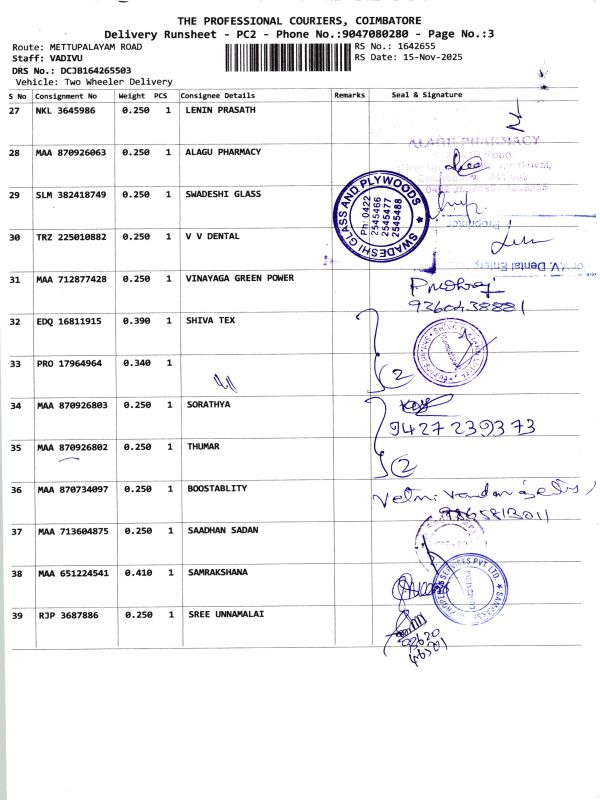 THE PROFESSIONAL COURIERS, COIMBATORE
Delivery Runsheet - PC2 - Phone No.:9047080280 - Page No.:3
Route: METTUPALAYAM ROAD
RS No.: 1642655
Staff: VADIVU
RS Date: 15-Nov-2025
DRS No.: DCJB164265503
Vehicle: Two Wheeler Delivery
S No Consignment No Weight PCS Consignee Details Remarks Seal & Signature
27 NKL 3645986 0.250 1 LENIN PRASATH
28 MAA 870926063 0.250 1 ALAGU PHARMACY
ALAGU PHARMACY
29 SLM 382418749 0.250 1 SWADESHI GLASS
SWADESHI GLASS AND PLYWOODS
Ph: 0422
2545466
2545477
2545488
30 TRZ 225010882 0.250 1 V V DENTAL
31 MAA 712877428 0.250 1 VINAYAGA GREEN POWER
9360438881
32 EDQ 16811915 0.390 1 SHIVA TEX
33 PRO 17964964 0.340 1
2
34 MAA 870926803 0.250 1 SORATHYA
9427239373
35 MAA 870926802 0.250 1 THUMAR
2
36 MAA 870734097 0.250 1 BOOSTABLITY
37 MAA 713604875 0.250 1 SAADHAN SADAN
38 MAA 651224541 0.410 1 SAMRAKSHANA
39 RJP 3687886 0.250 1 SREE UNNAMALAI